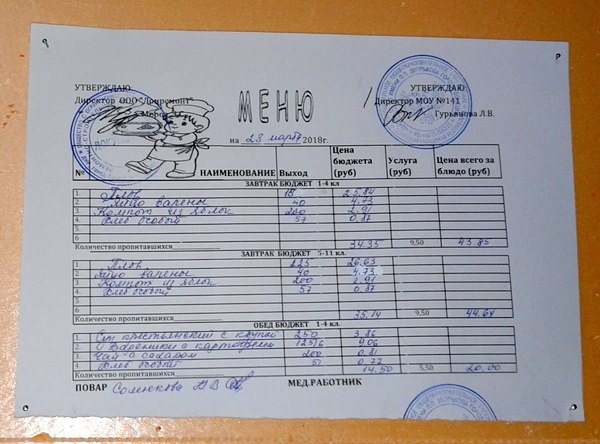 УТВЕРЖДАЮ УТВЕРЖДАЮ
Директор ООО "Донремонт" Директор МОУ №141
МЕНЮ
Гурьянова Л.В.
на 23 марта 2018г.
№ НАИМЕНОВАНИЕ Выход Цена бюджета (руб) Услуга (руб) Цена всего за блюдо (руб)
ЗАВТРАК БЮДЖЕТ 1-4 кл
1. Плов 25.84
2. Яйцо вареный 40 4.73
3. Компот из яблок 200 2.91
4. Хлеб особый 57 0.87
5.
6
Количество пропитавшихся 34.35 9,50 43.85
ЗАВТРАК БЮДЖЕТ 5-11 кл.
1. Плов 225 26.63
2. Яйцо вареный 40 4.73
3. Компот из яблок 200 2.91
4. Хлеб особый 57 0.87
5.
6.
Количество пропитавшихся 35.14 9,50 44.64
ОБЕД БЮДЖЕТ 1-4кл.
1. Суп крестьянский с крупой 250 3.86
2. Вареники с картофелем 125/6 9.06
3. Чай с сахаром 200 0.81
4. Хлеб особый 51 0.77
Количество пропитавшихся 14.50 5,50 20.00
ПОВАР Соленкова Н В МЕД.РАБОТНИК